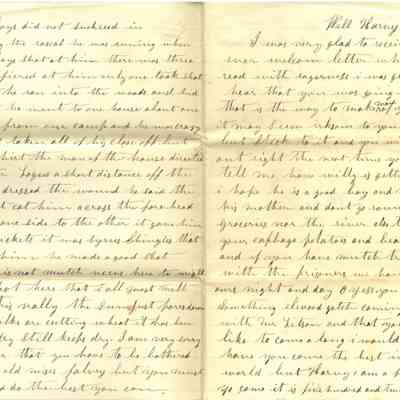 boys did not suckseed in
the rascal he was running when
boys shot at him there was three
fierd at him only one took shot
he ran into the woods and hid
he went to one house about one
from our camp and he was crazy
taken all of his close off but
shirt the man of the house directed
Loges a short distance off the
dressed the wound he said the
cot him across the fore head
one side to the other it gave him
it was byrds Shingles that
him he made a good shot
is not mutch news here to night
hot here that I all most melt
this rally the durnfust
folks are cutting wheat it has been
dry Still keeps dry I am very sorry
that you have to be bothered
old miss but you must
do the best you can
Will Harvy
I was very glad to recei
ever welcom letter wh
read with eagerness i was
hear that you was going
that is the way to make
it may Seem irksom to you
but Stick to it and you wi
out right the next time yo
tell me how willy is getti
i hope he is a good boy and
his mother and dont go roun
groceries nor the river elec
your cabbage potatoes and bea
and if you have mutch tr
with the prisoners we hav
ours night and day O yes you
Something elce
with Mr and that you
like to come a long i would
have you come the best in
world but Harvy i am a
to come it is five hundred and tw